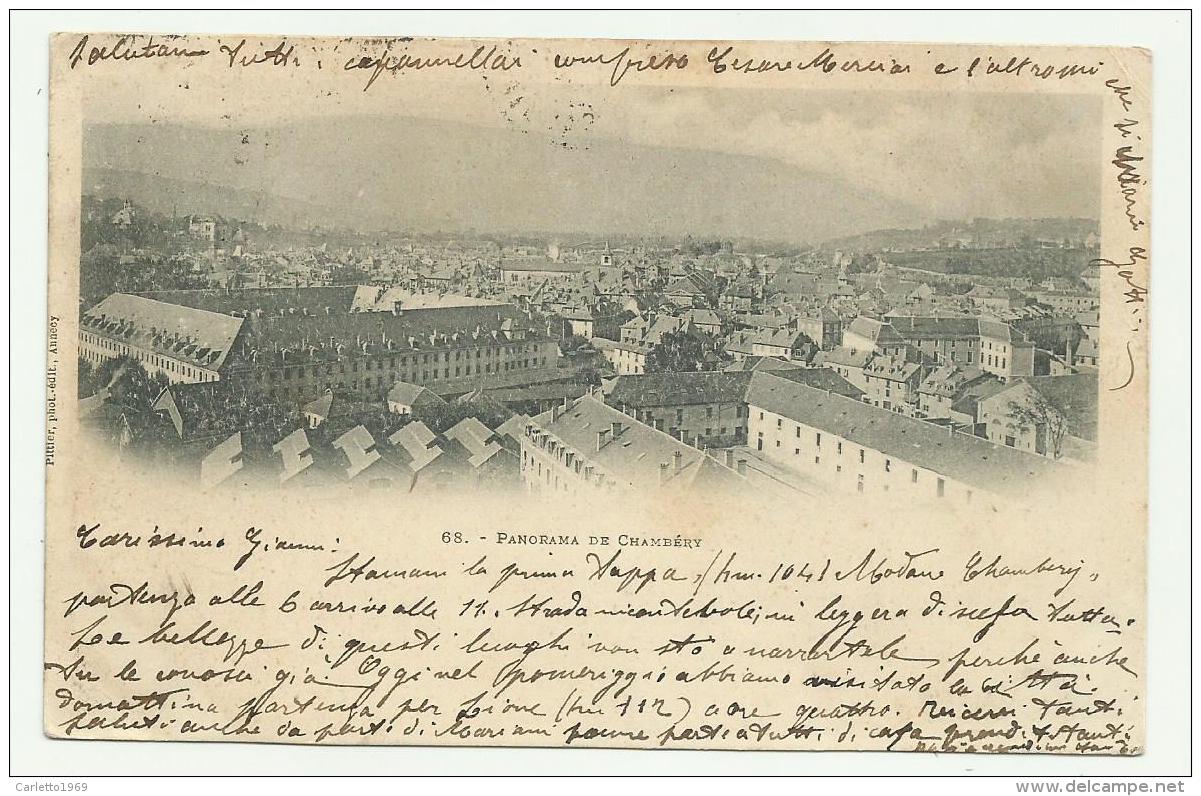 Salutami tutti i capannellai compreso Cesare Merciai e l'altro mi
che si
Pittier, phot.-édit., Annecy
68. - PANORAMA DE CHAMBÉRY
Carissimo Gianni:
Stamani la prima tappa, (km. 104) Modane Chambery,
partenza alle 6 arrivo alle 11. Strada incantevole, in leggera discesa tutta.
Le bellezze di questi luoghi non sto a narrartele, perchè anche
tu le conosci già. Oggi nel pomeriggio abbiamo visitato la città.
domattina partenza per Lione (km 112) a ore quattro. tanti
saluti anche da parte di Mariani pure parte a tutti di casa prendi tanti
Carletto1969
www.delcampe.net